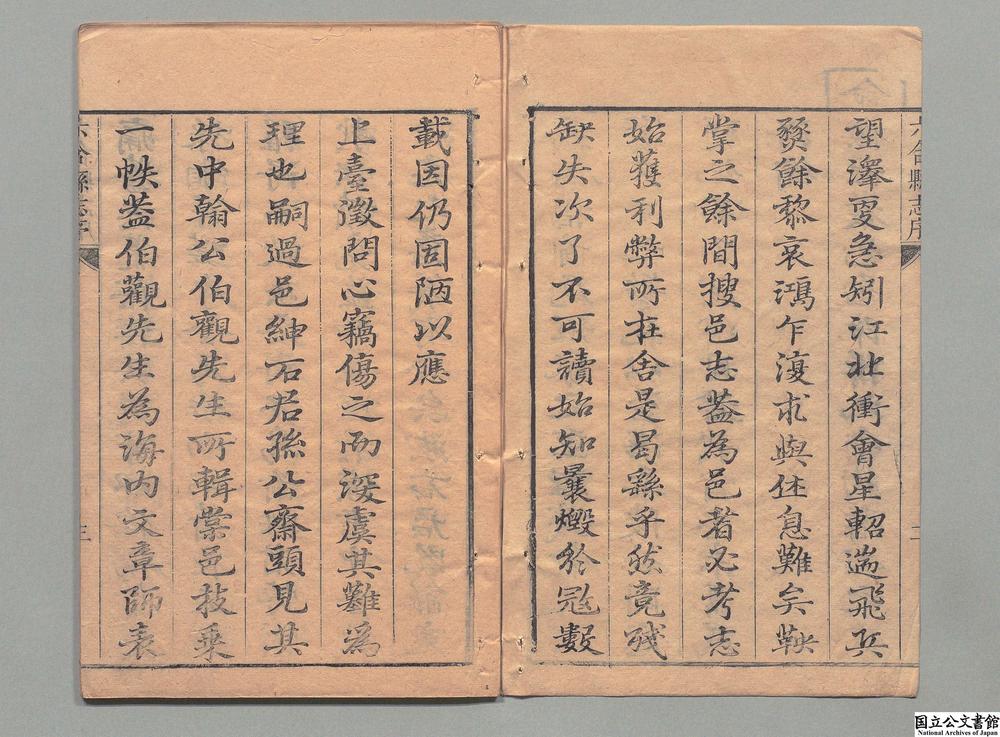 六合縣志序
二
望澤更急矧江北衝會星軺遄飛兵
燹餘黎哀鴻乍復求與休息難矣鞅
掌之餘間搜邑志蓋為邑者必考志
始獲利弊所在舍是曷繇乎然竟殘
缺失次了不可讀始知曩燬於冠數
載因仍固陋以應
上臺徵問心竊傷之而深虞其難為
理也嗣過邑紳石君孫公齋頭見其
先中翰公伯觀先生所輯棠邑技乗
一帙蓋伯觀先生為海內文章師表
六合縣志序
三
国立公文書館
National Archives of Japan